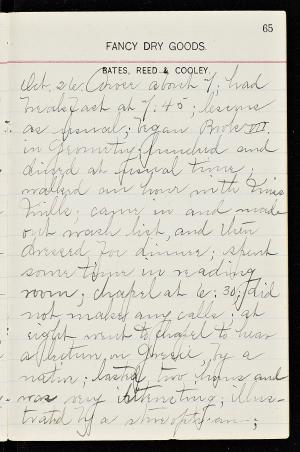 65
FANCY DRY GOODS.
BATES, REED & COOLEY,
Oct. 26. Arose about 7; had
breakfast at 7:45; lessons
as usual; began Book III.
in Geometry; lunched and
dined at usual time;
walked an hour with Miss
Mills; came in and made
out wash list, and then
dressed for dinner; spent
some time in reading
room; chapel at 6:30; did
not make any calls; at
eight went to chapel to hear
a lecture on Greece, by a
native; lasted two hours and
was very interesting; illus-
trated by a stereopticon;